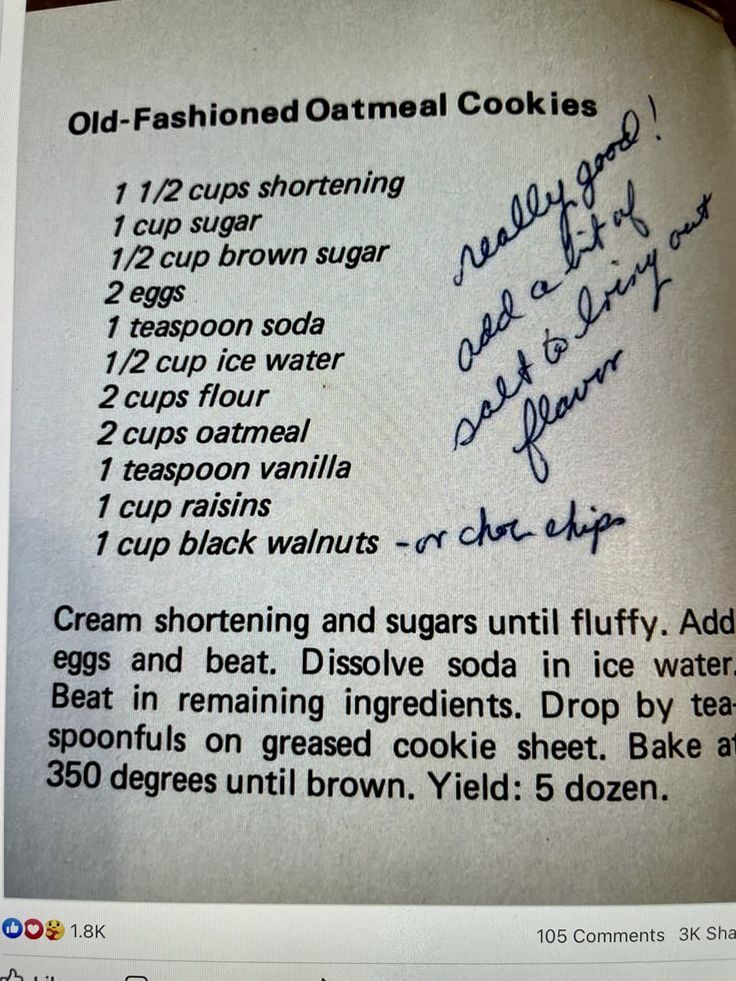 Old-Fashioned Oatmeal Cookies
1 1/2 cups shortening
1 cup sugar
1/2 cup brown sugar
2 eggs
1 teaspoon soda
1/2 cup ice water
2 cups flour
2 cups oatmeal
1 teaspoon vanilla
1 cup raisins
1 cup black walnuts - or choc chips
really good!
add a bit of
salt to bring out
flavor
Cream shortening and sugars until fluffy. Add
eggs and beat. Dissolve soda in ice water.
Beat in remaining ingredients. Drop by tea-
spoonfuls on greased cookie sheet. Bake at
350 degrees until brown. Yield: 5 dozen.
1.8K
105 Comments 3K Sha